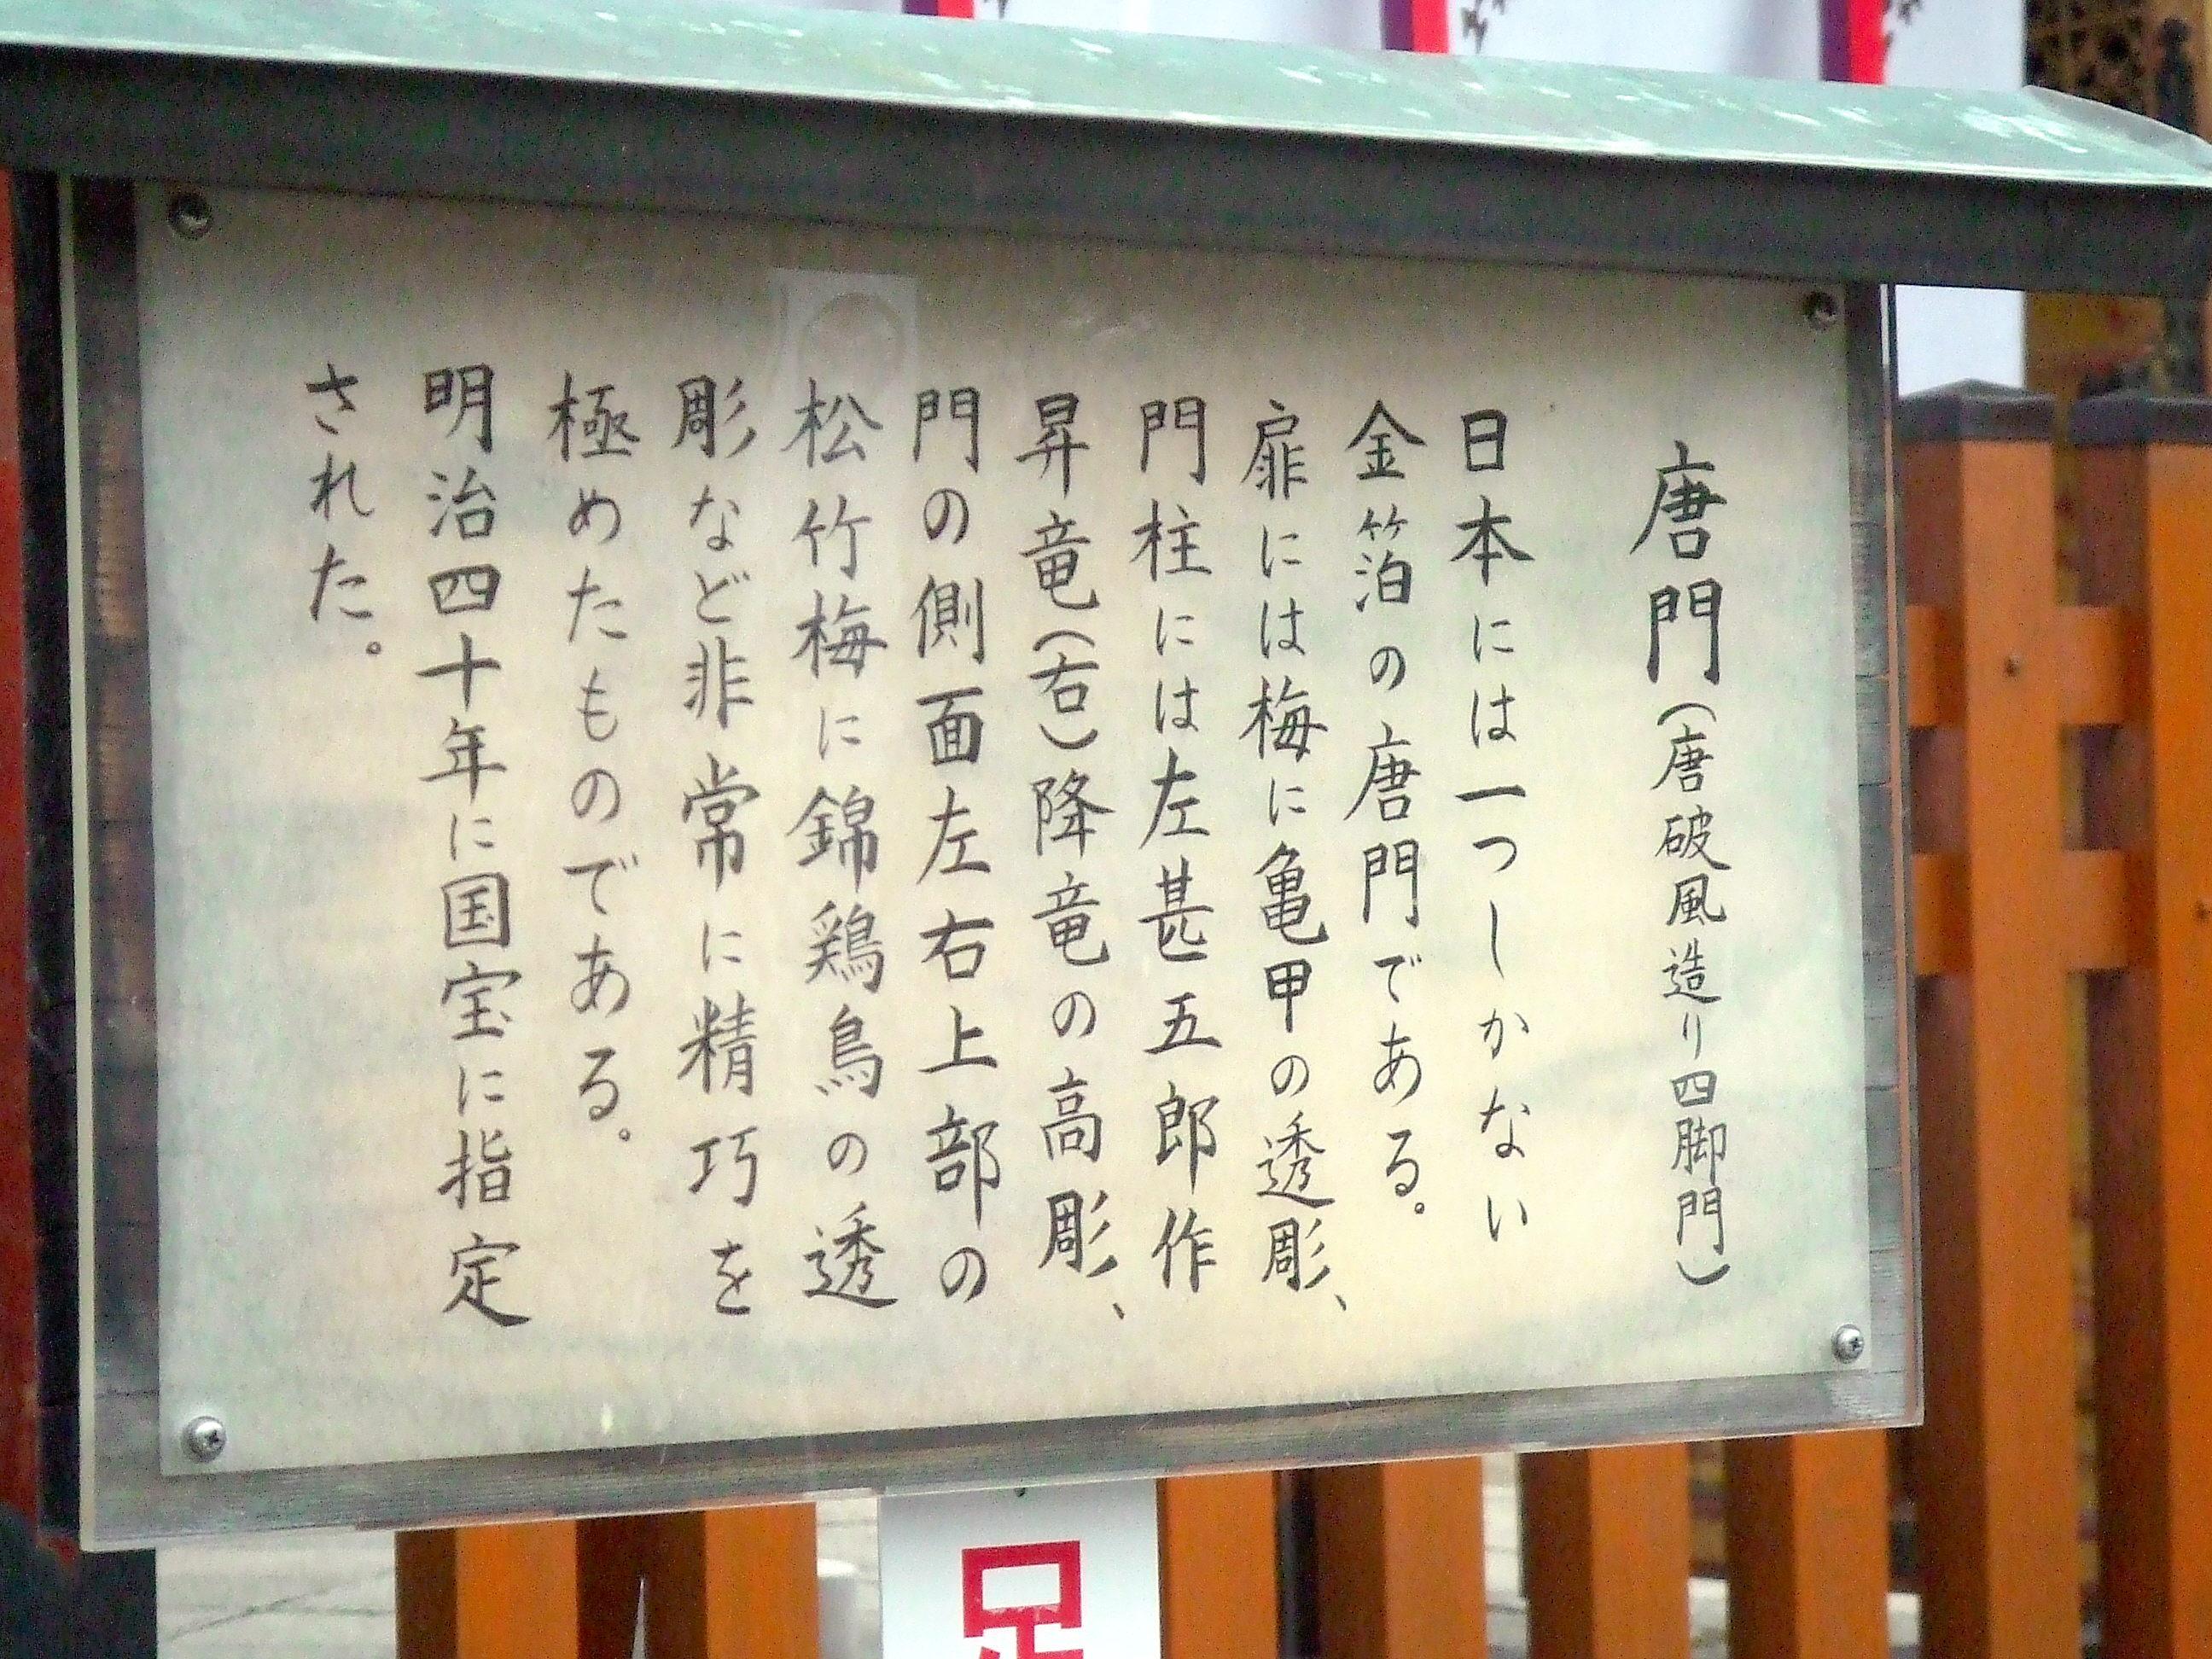 唐門(唐破風造り四脚門)
日本には一つしかない
金箔の唐門である。
扉には梅に亀甲の透彫、
門柱には左甚五郎作
昇竜(右)降竜の高彫、
門の側面左右上部の
松竹梅に錦鶏鳥の透
彫など非常に精巧を
極めたものである。
明治四十年に国宝に指定
された。
足